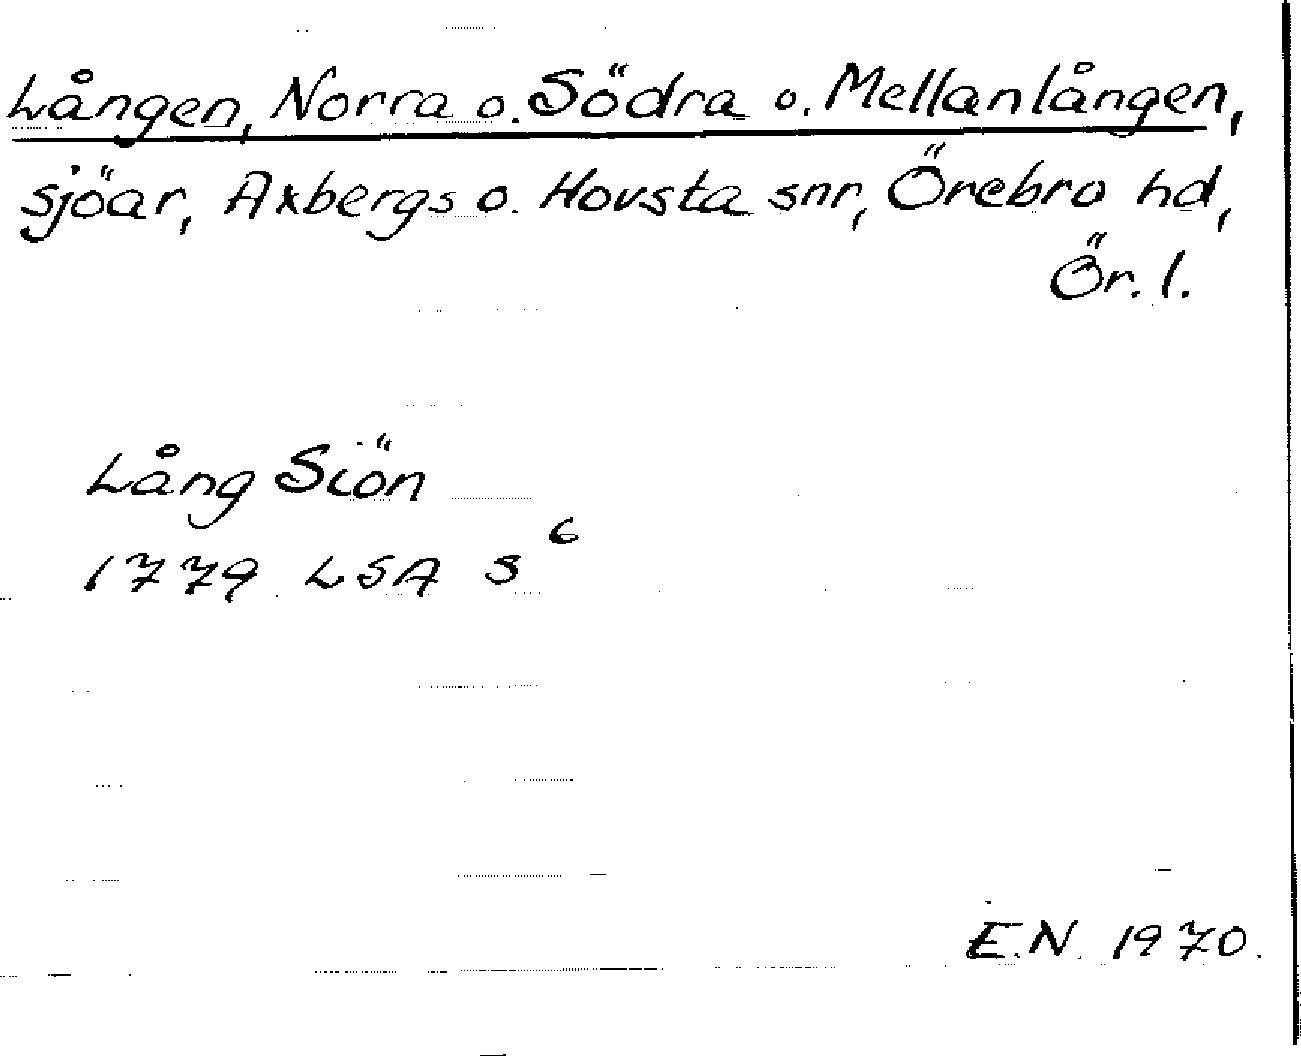 Lången, Norra o. Södra o. Mellanlången,
sjöar, Axbergs o. Hovsta snr, Örebro hd,
Ör. l.
Lång Siön
1779 LSA S⁶
E.N. 1970.